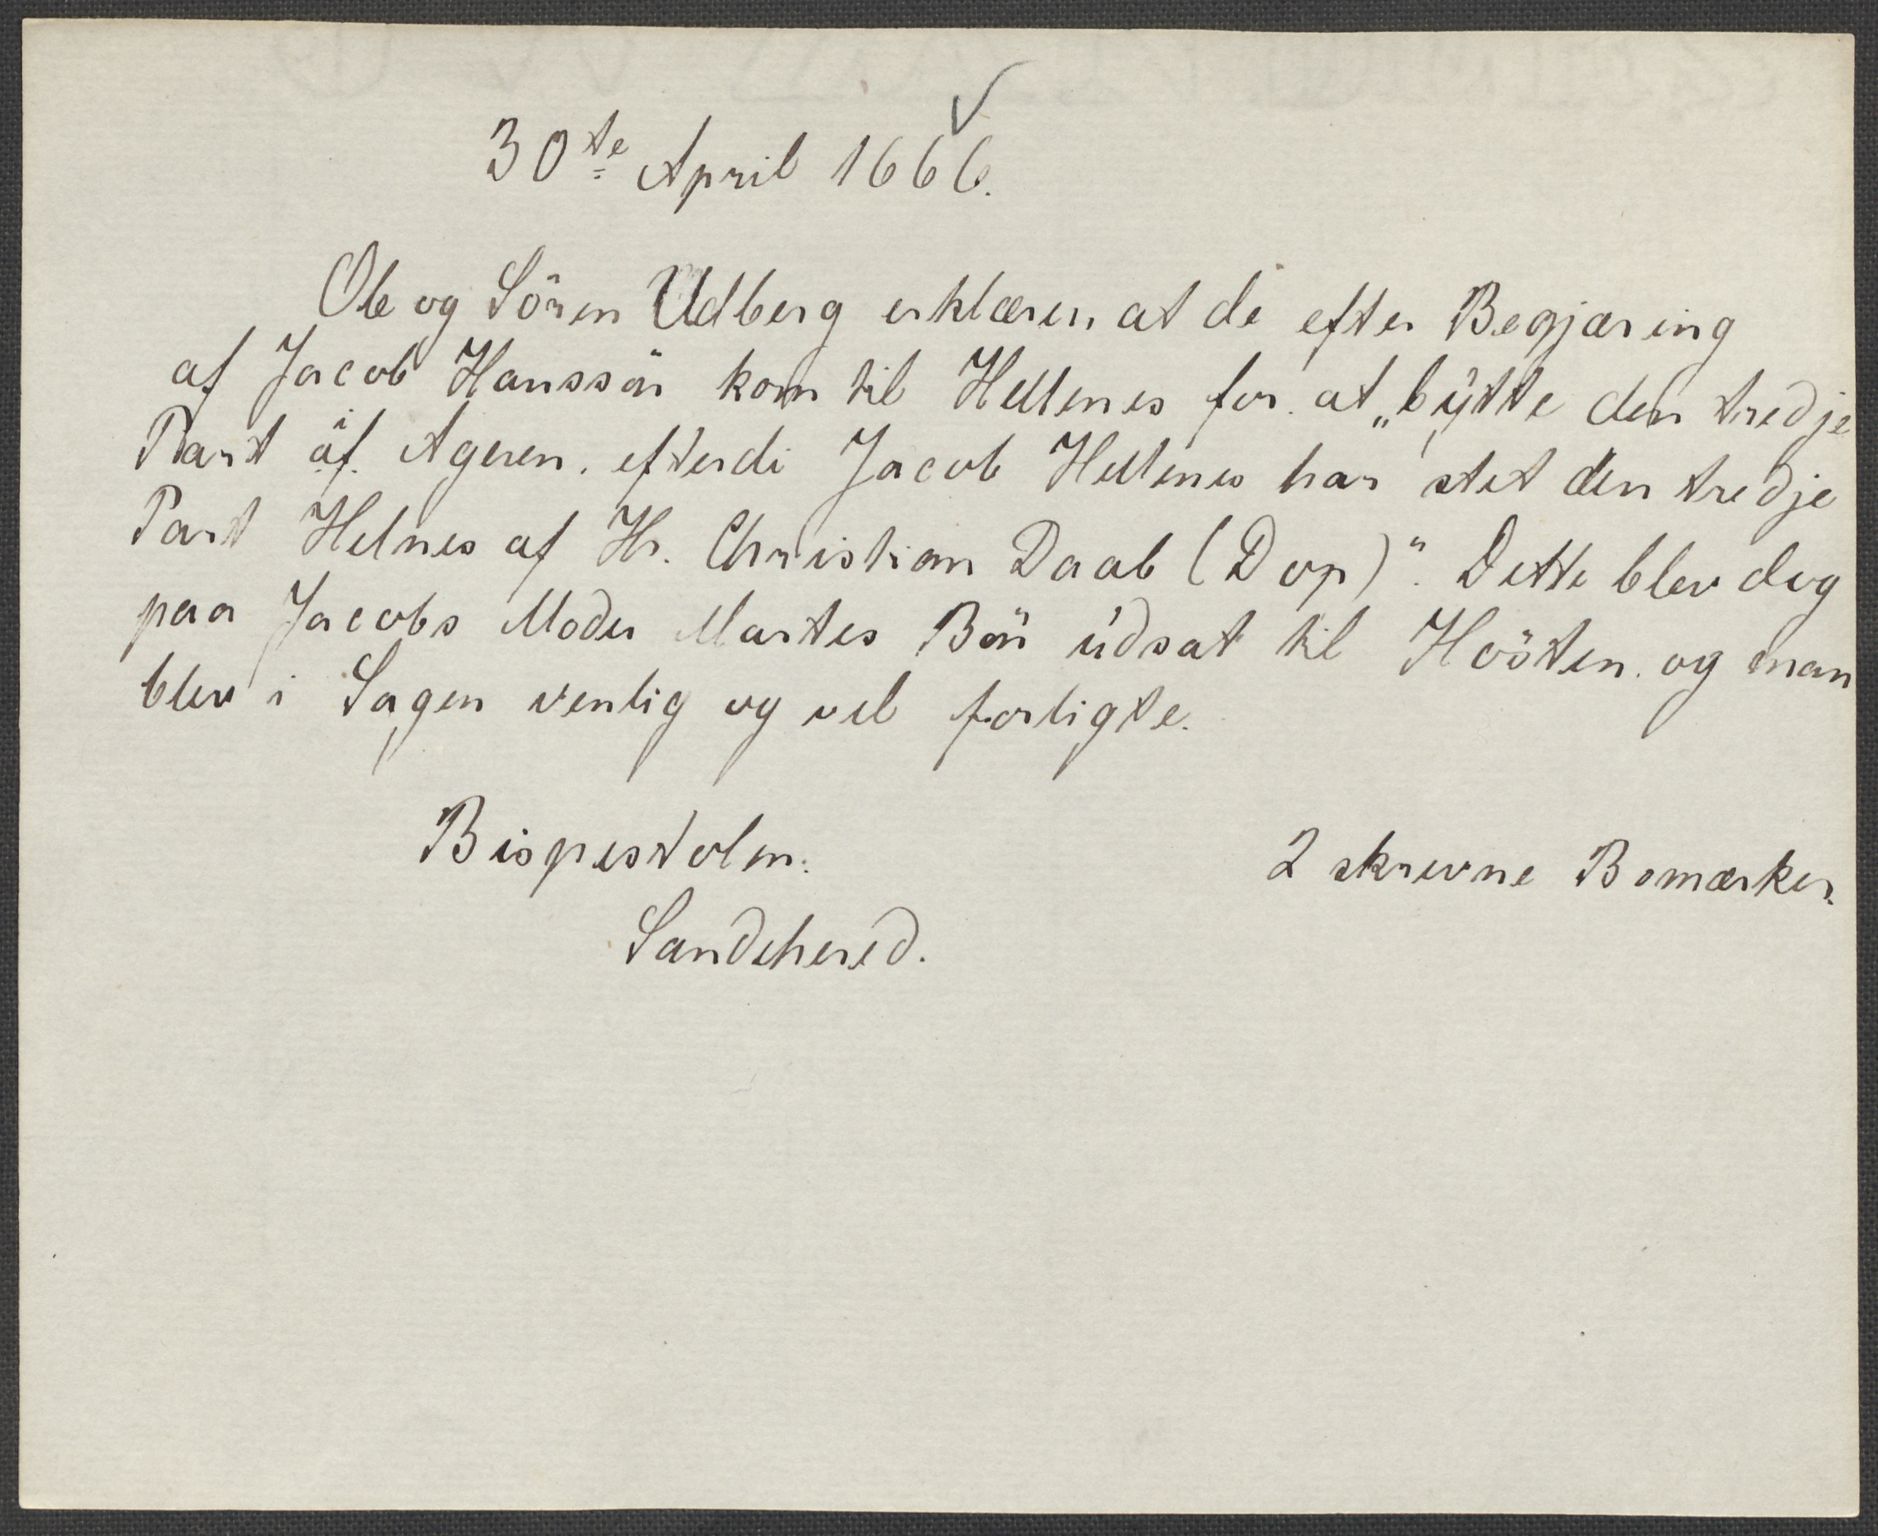 30te April 1666.
Ole og Sören Udberg erklærer at de efter Begjæring
af Jacob Hanssön kom til Hellenes for at „bÿtte den tredje
Part af Ageren. efterdi Jacob Hellenes har stet den tredje
Part Helnes af Hr. Christian Daab (Dop)“. Dette blev dog
paa Jacobs Moder Martes Bön udsat til Hösten. og man
blev i Sagen venlig og vel forligte.
Bispestolen.
2 skrevne Bomærker.
Sandehered.